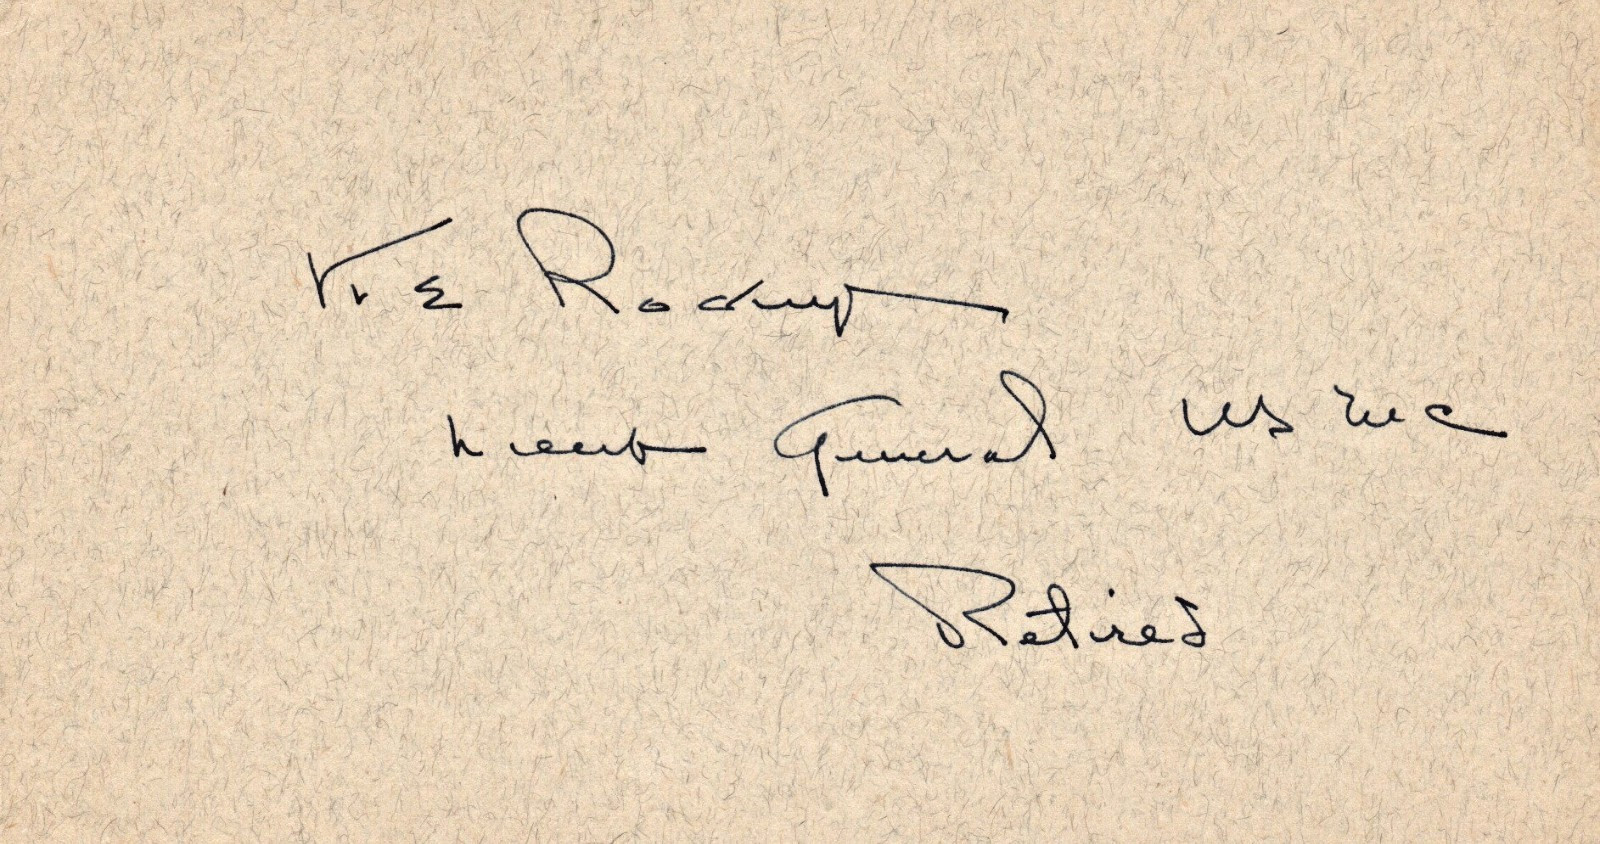 K E Rockey
Lieut General USMC
Retired